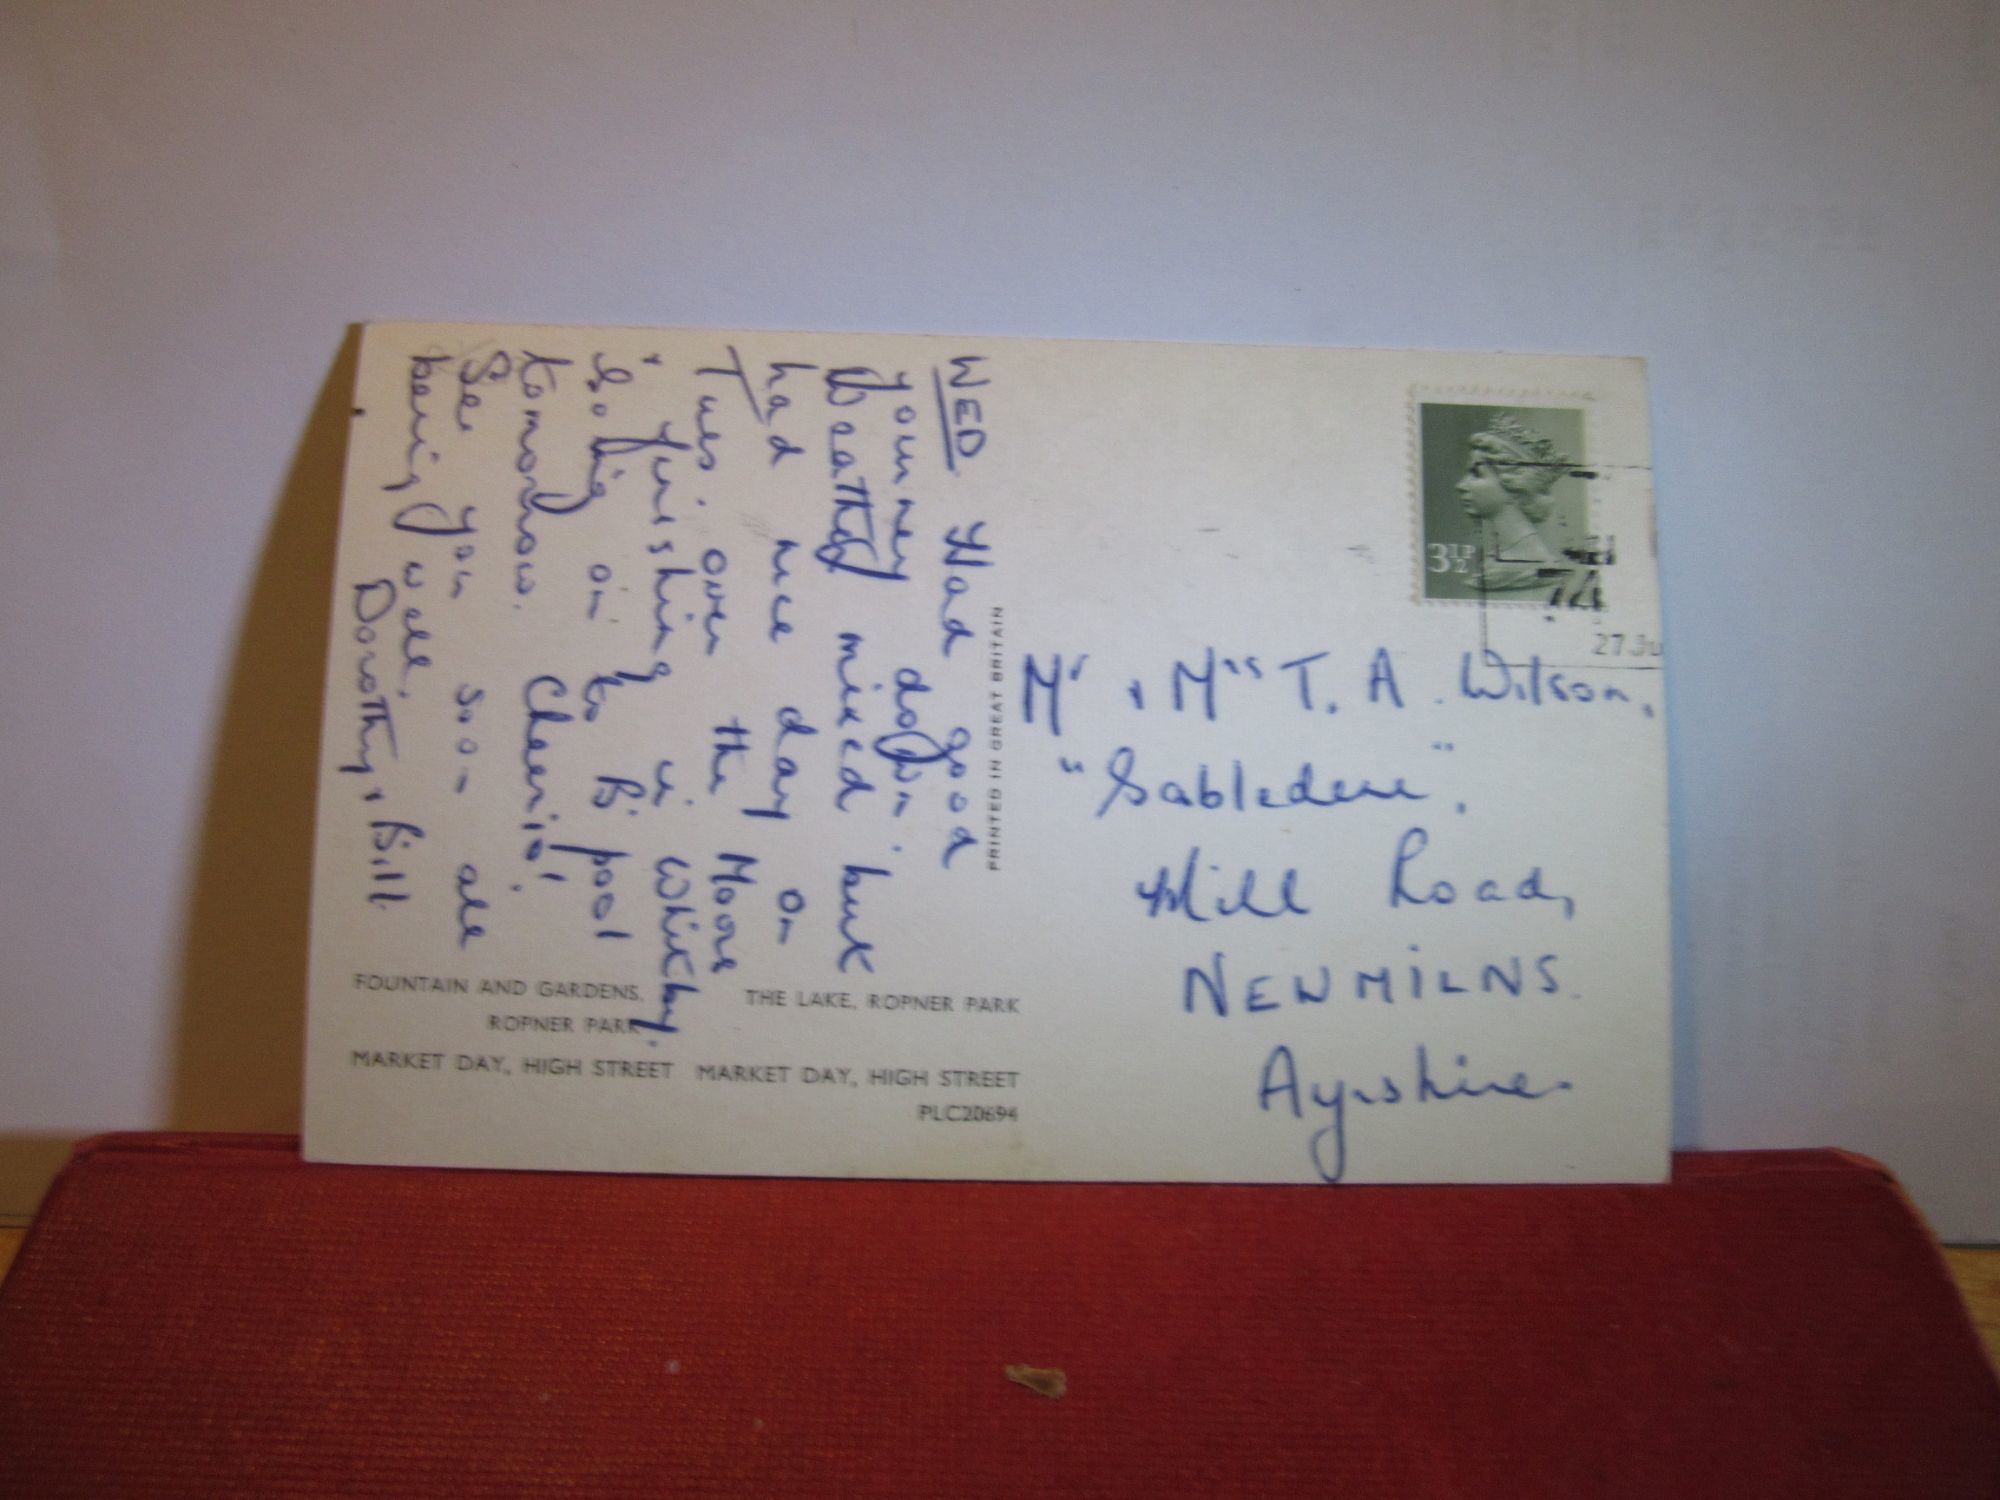 WED. Had good
journey down.
Weather mixed but
had nice day on
Tues. over the Moors
+ finishing in Whitby.
Going on to B'pool
tomorrow. Cheerio!
See you soon all
being well.
Dorothy + Bill.
PRINTED IN GREAT BRITAIN
3½P
74
27 Ju
Mr + Mrs T. A. Wilson,
"Sabledene",
Mill Road,
NEWMILNS.
Ayrshire.
FOUNTAIN AND GARDENS, ROPNER PARK
THE LAKE, ROPNER PARK
MARKET DAY, HIGH STREET MARKET DAY, HIGH STREET
PLC20694